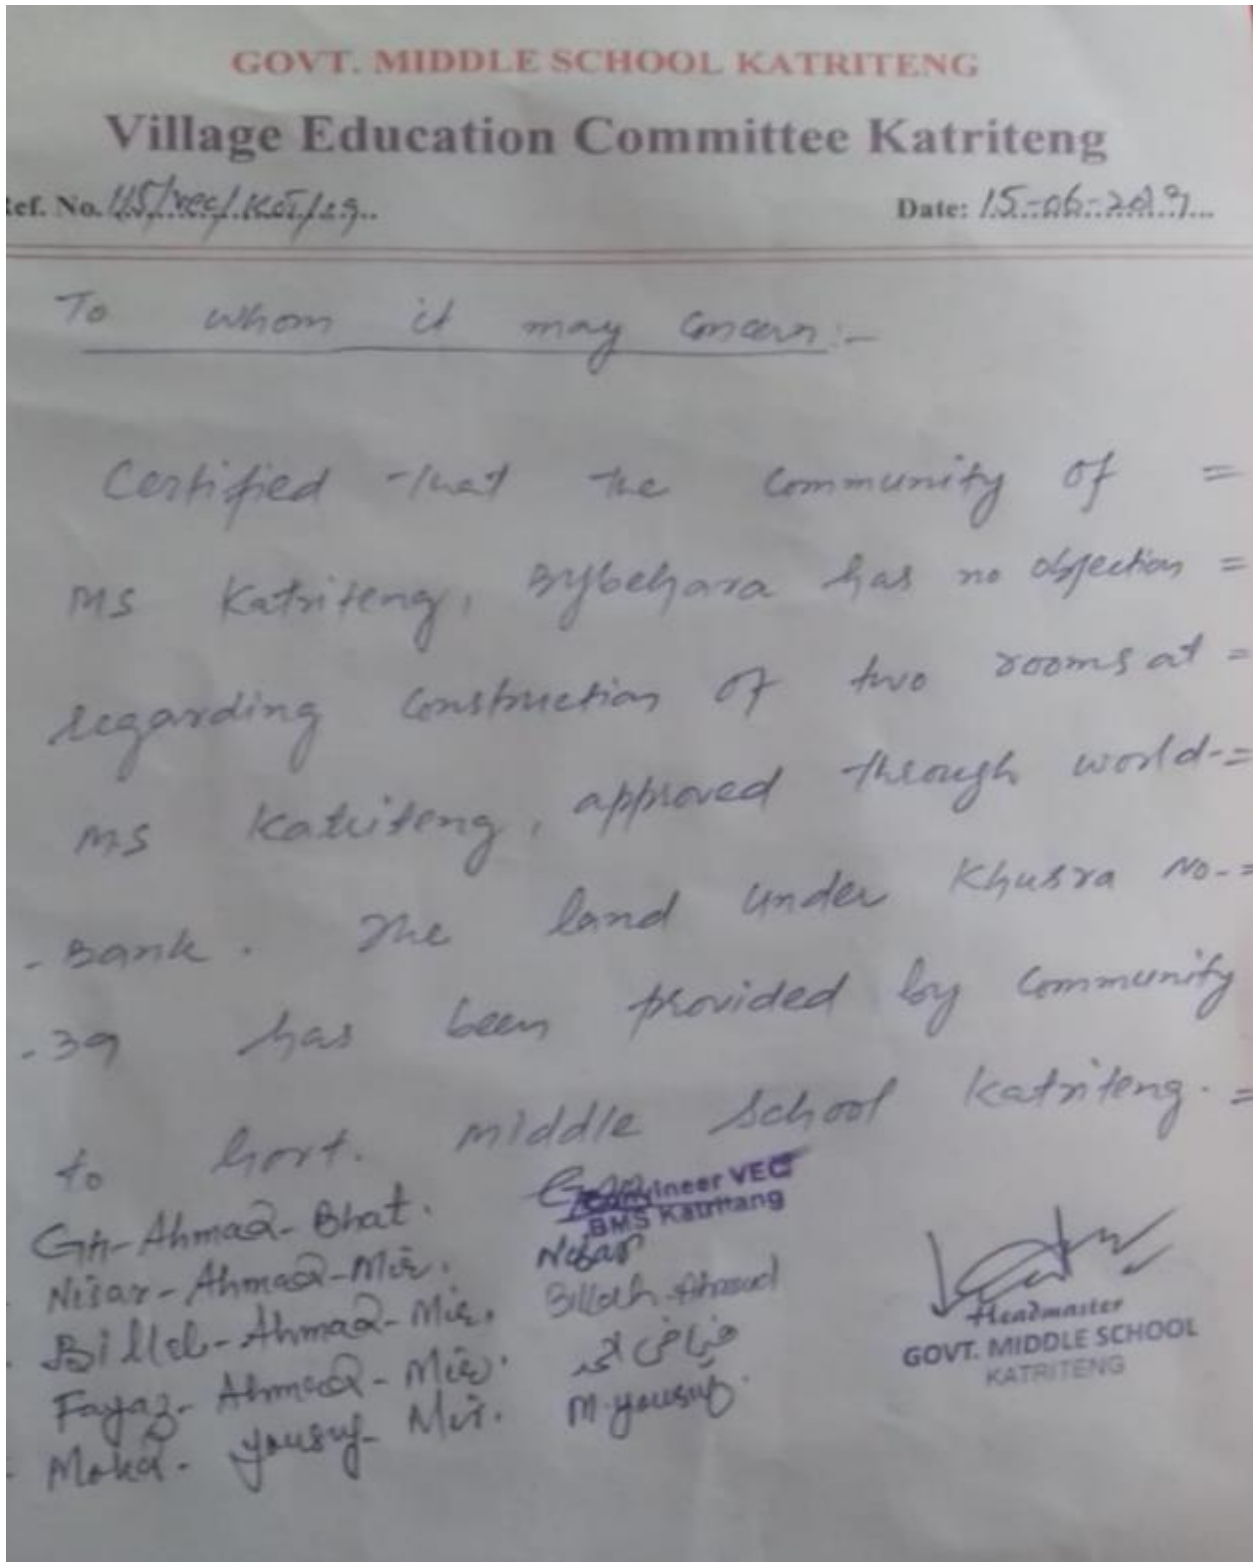 GOVT. MIDDLE SCHOOL KATRITENG
Village Education Committee Katriteng
ef. No. 115/vec/Kat/ Date: 15-06-2019
To whom it may concern:-
Certified that the Community of =
MS Katriteng, Bybehara has no objection =
regarding construction of two rooms at =
MS Katriteng, approved through world-=
- Bank. The land under Khusra No-=
-39 has been provided by Community
to Govt. middle school Katriteng. =
Gh-Ahmad-Bhat.
Convineer VEC
BMS Katritang
Nisar-Ahmad-Mir. Nisar
Billal-Ahmad-Mir. Billah Ahmad
Fayaz-Ahmad-Mir. فیاض احمد
Mohd. Yousuf-Mir. M. yousuf.
Headmaster
GOVT. MIDDLE SCHOOL
KATRITENG